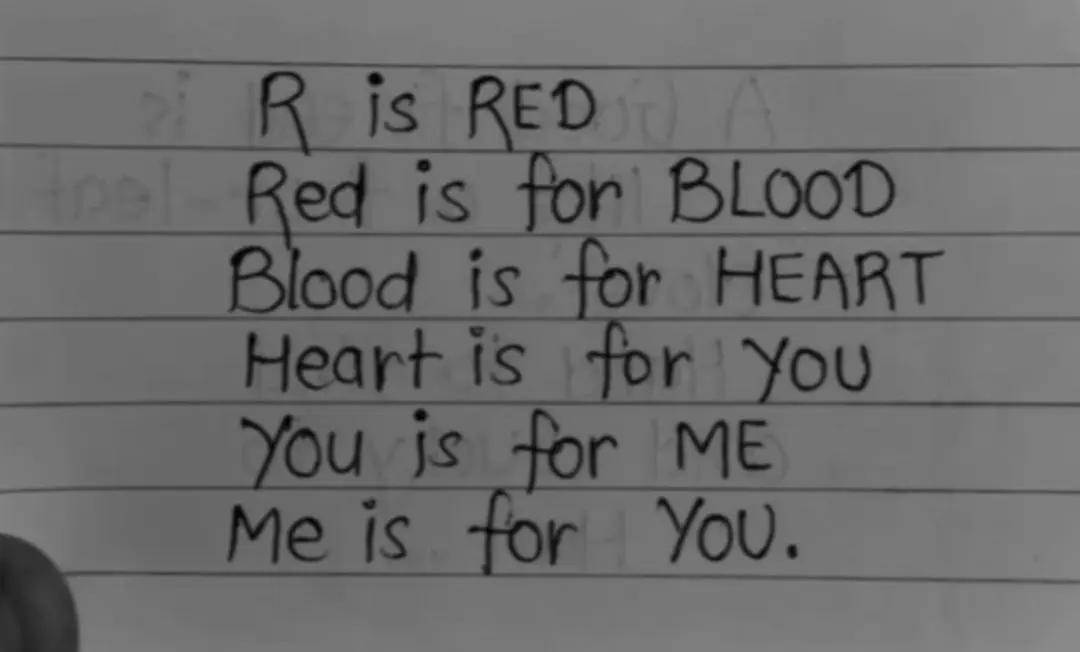 R is RED
Red is for BLOOD
Blood is for HEART
Heart is for YOU
You is for ME
Me is for YOU.